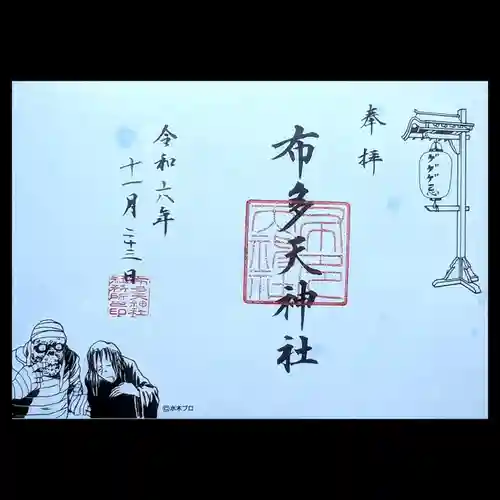 奉拝
ゲゲゲ忌
布多天神社
令和六年
十一月二十三日
©水木プロ